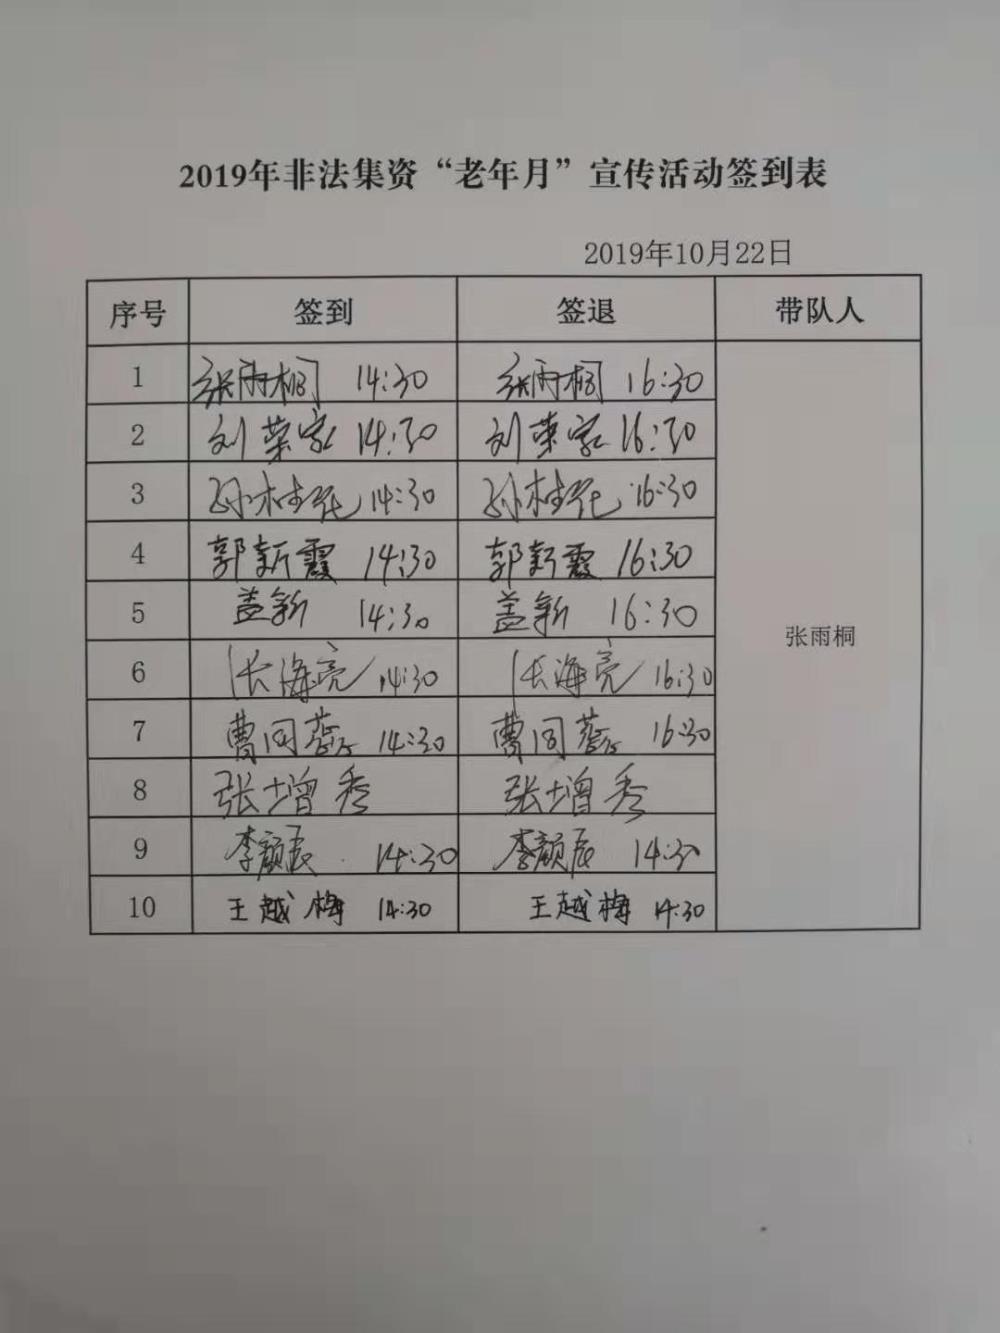 2019年非法集资“老年月”宣传活动签到表
2019年10月22日
序号 签到 签退 带队人
1 张雨桐 14:30 张雨桐 16:30
2 刘荣家 14:30 刘荣家 16:30
3 孙桂花 14:30 孙桂花 16:30
4 郭新霞 14:30 郭新霞 16:30
5 盖新 14:30 盖新 16:30
张雨桐
6 张海亮 14:30 张海亮 16:30
7 曹同 14:30 曹同 16:30
8 张增秀 张增秀
9 李颜辰 14:30 李颜辰 14:30
10 王越梅 14:30 王越梅 14:30